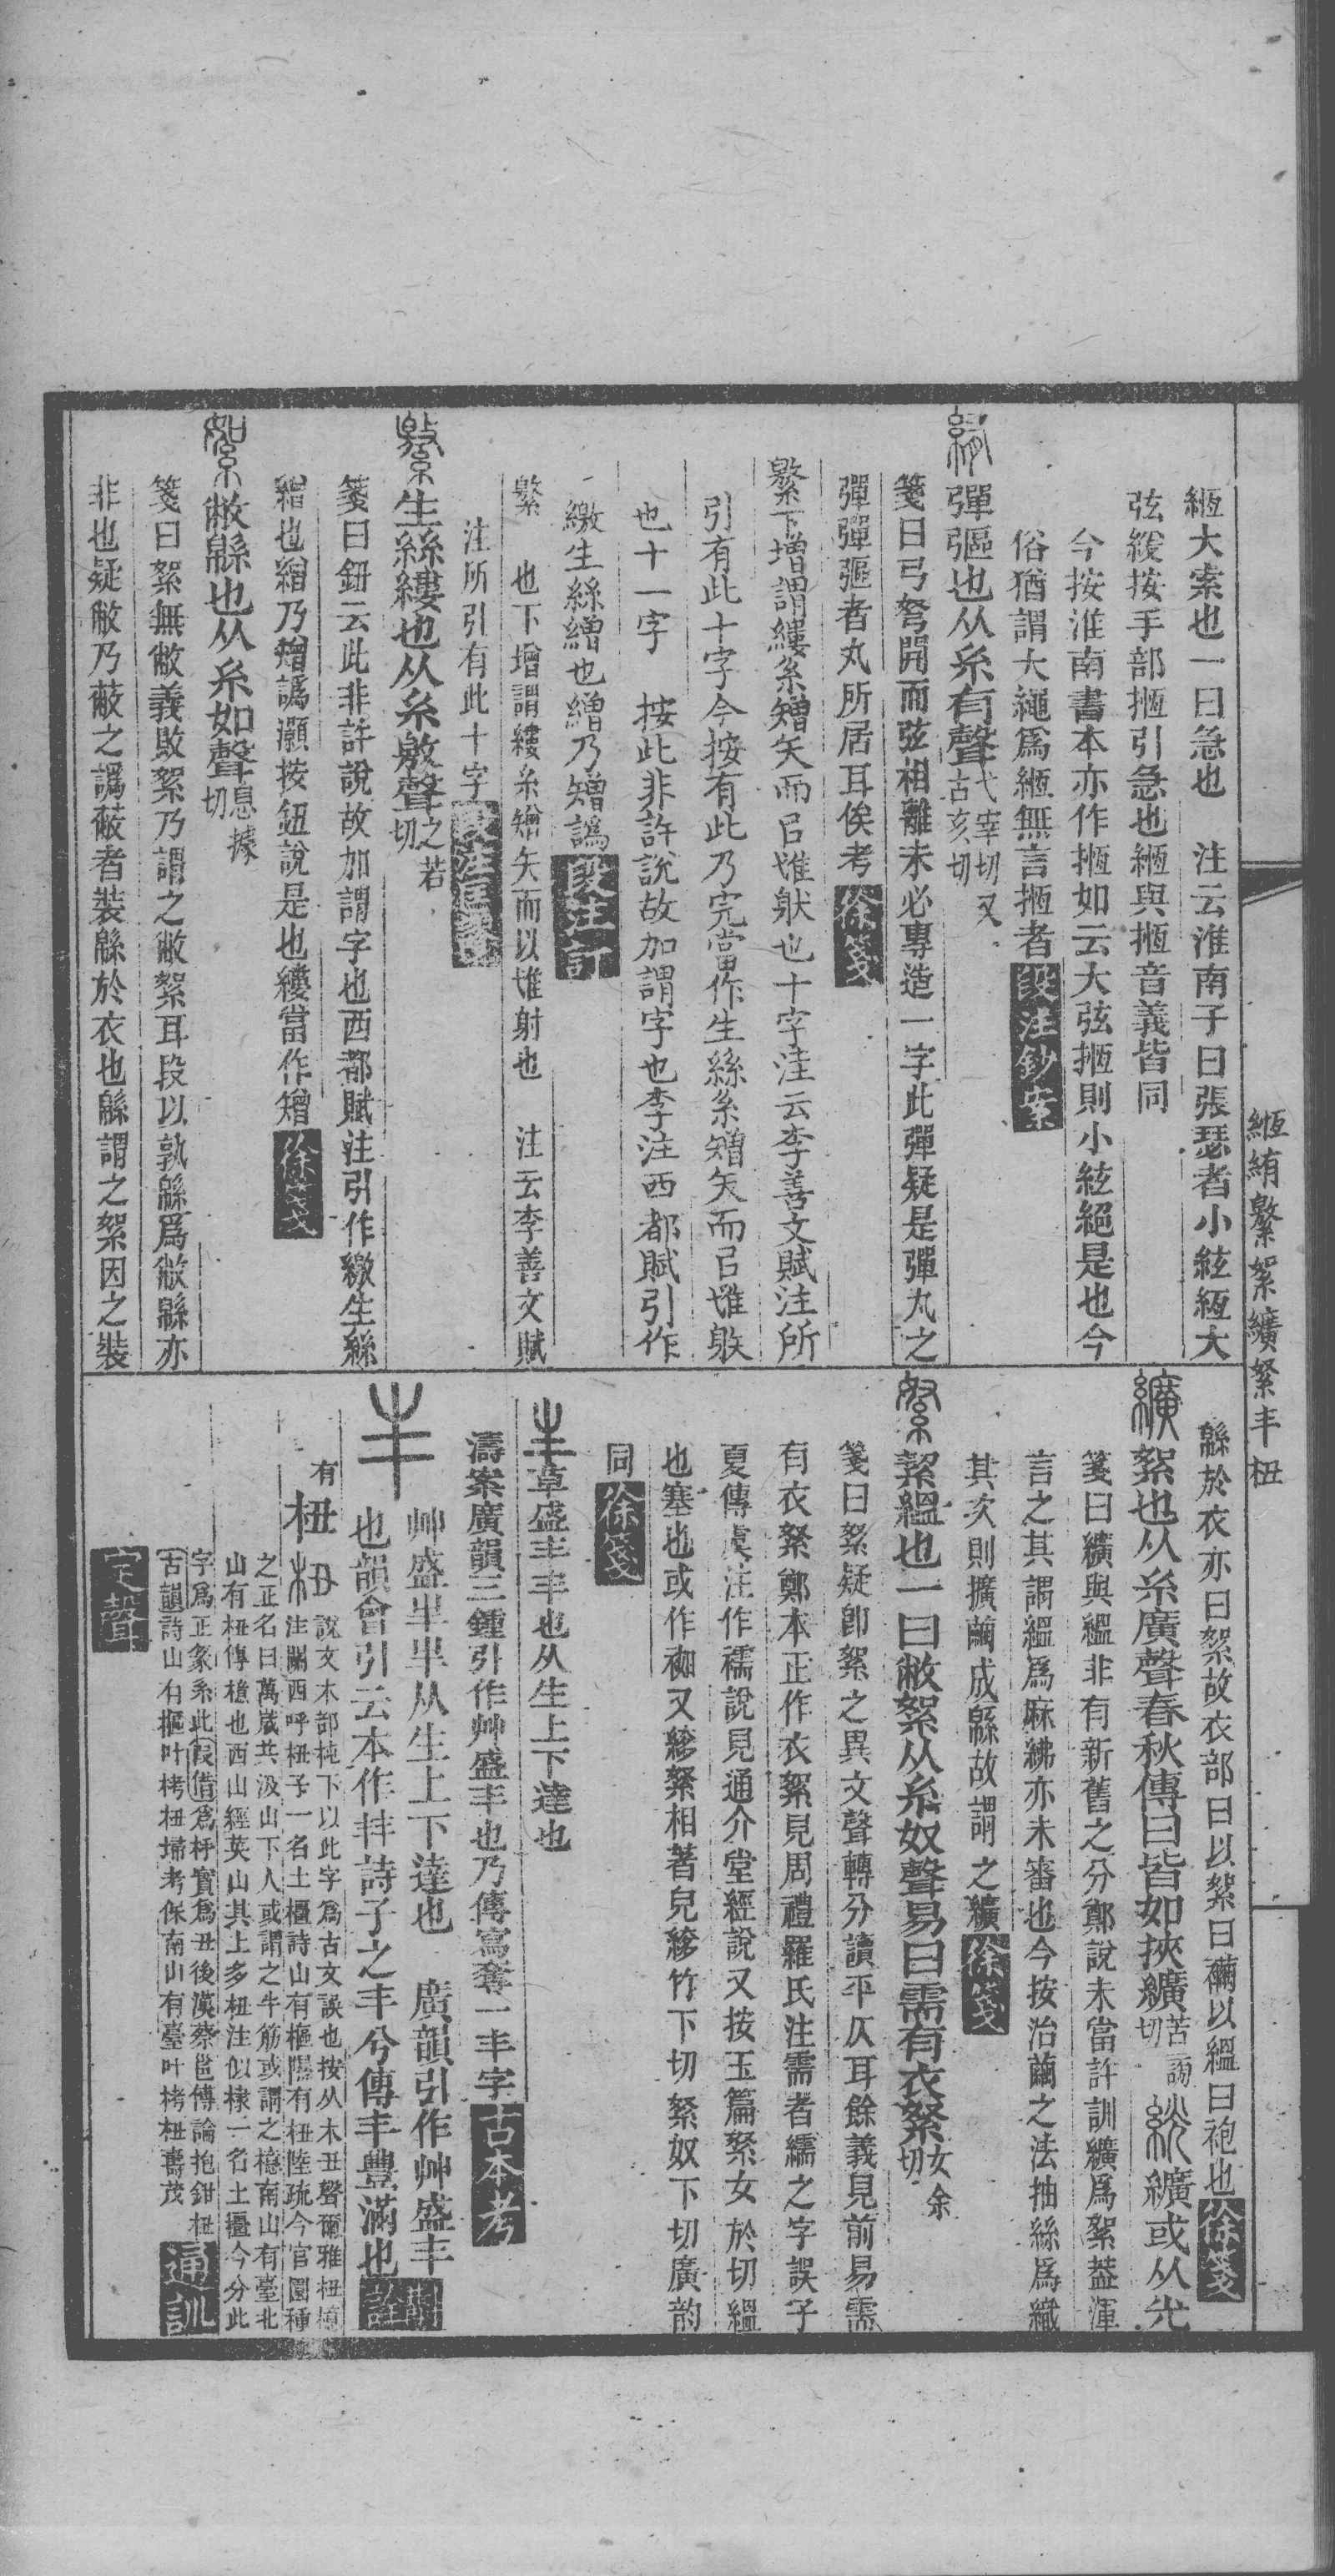 緪絠繁絮纊絮丰杻
緪大索也一曰急也　注云淮南子曰張瑟者小絃緪大
弦緩按手部搄引急也緪與搄音義皆同
今按淮南書本亦作搄如云大弦搄則小絃絕是也今
俗猶謂大繩爲緪無言搄者段注鈔案
彈彄也从糸有聲弋宰切又古亥切
箋曰弓弩開而弦相離未必專造一字此彈疑是彈丸之
彈彈彄者丸所居耳俟考徐箋
繁下增謂縷系矰矢而㠯隿䠶也十字注云李善文賦注所
引有此十字今按有此乃完當作生絲系矰矢而㠯隿䠶
也十一字　按此非許說故加謂字也李注西都賦引作
繳生絲繒也繒乃矰譌段注訂
繁　也下增謂縷系矰矢而以隿射也　注云李善文賦
注所引有此十字
生絲縷也从糸敫聲之若切
箋曰鈕云此非許說故加謂字也西都賦注引作繳生絲
繒也繒乃矰譌灝按鈕說是也縷當作矰徐箋
敝緜也从糸如聲息據切
箋曰絮無敝義敗絮乃謂之敝絮耳段以孰緜爲敝緜亦
非也疑敝乃蔽之譌蔽者裝緜於衣也緜謂之絮因之裝
緜於衣亦曰絮故衣部曰以絮曰襺以縕曰袍也徐箋
絮也从糸廣聲春秋傳曰皆如挾纊苦謗切絖纊或从光
箋曰纊與縕非有新舊之分鄭說未當許訓纊爲絮葢渾
言之其謂縕爲麻紼亦未審也今按治繭之法抽絲爲織
其次則擴繭成緜故謂之纊徐箋
絜縕也一曰敝絮从糸奴聲易曰需有衣絮女余切
箋曰絮疑卽絮之異文聲轉分讀平仄耳餘義見前易需
有衣絮鄭本正作衣絮見周禮羅氏注需者繻之字誤子
夏傳虞注作襦說見通介堂經說又按玉篇絮女於切縕
也塞也或作袽又縿絮相著皃縿竹下切絮奴下切廣韵
同徐箋
草盛丰丰也从生上下達也
濤案廣韻三鍾引作艸盛丰也乃傳寫奪一丰字古本考
艸盛丰丰从生上下達也　廣韻引作艸盛丰
也韻會引云本作丰詩子之丰兮傳丰豐滿也
有杻
說文木部杶下以此字爲古文誤也按从木丑聲爾雅杻檍
注關西呼杻子一名土橿詩山有樞隰有杻陸疏今官園種
之正名曰萬歲其汲山下人或謂之牛筋或謂之檍南山有臺北
山有杻傳檍也西山經英山其上多杻注似棣一名土橿今分此
字爲正篆系此假借爲杽實爲丑後漢蔡邕傳論抱鉗杻
古韻詩山有樞叶栲杻埽考保南山有臺叶栲杻壽茂通訓
定聲